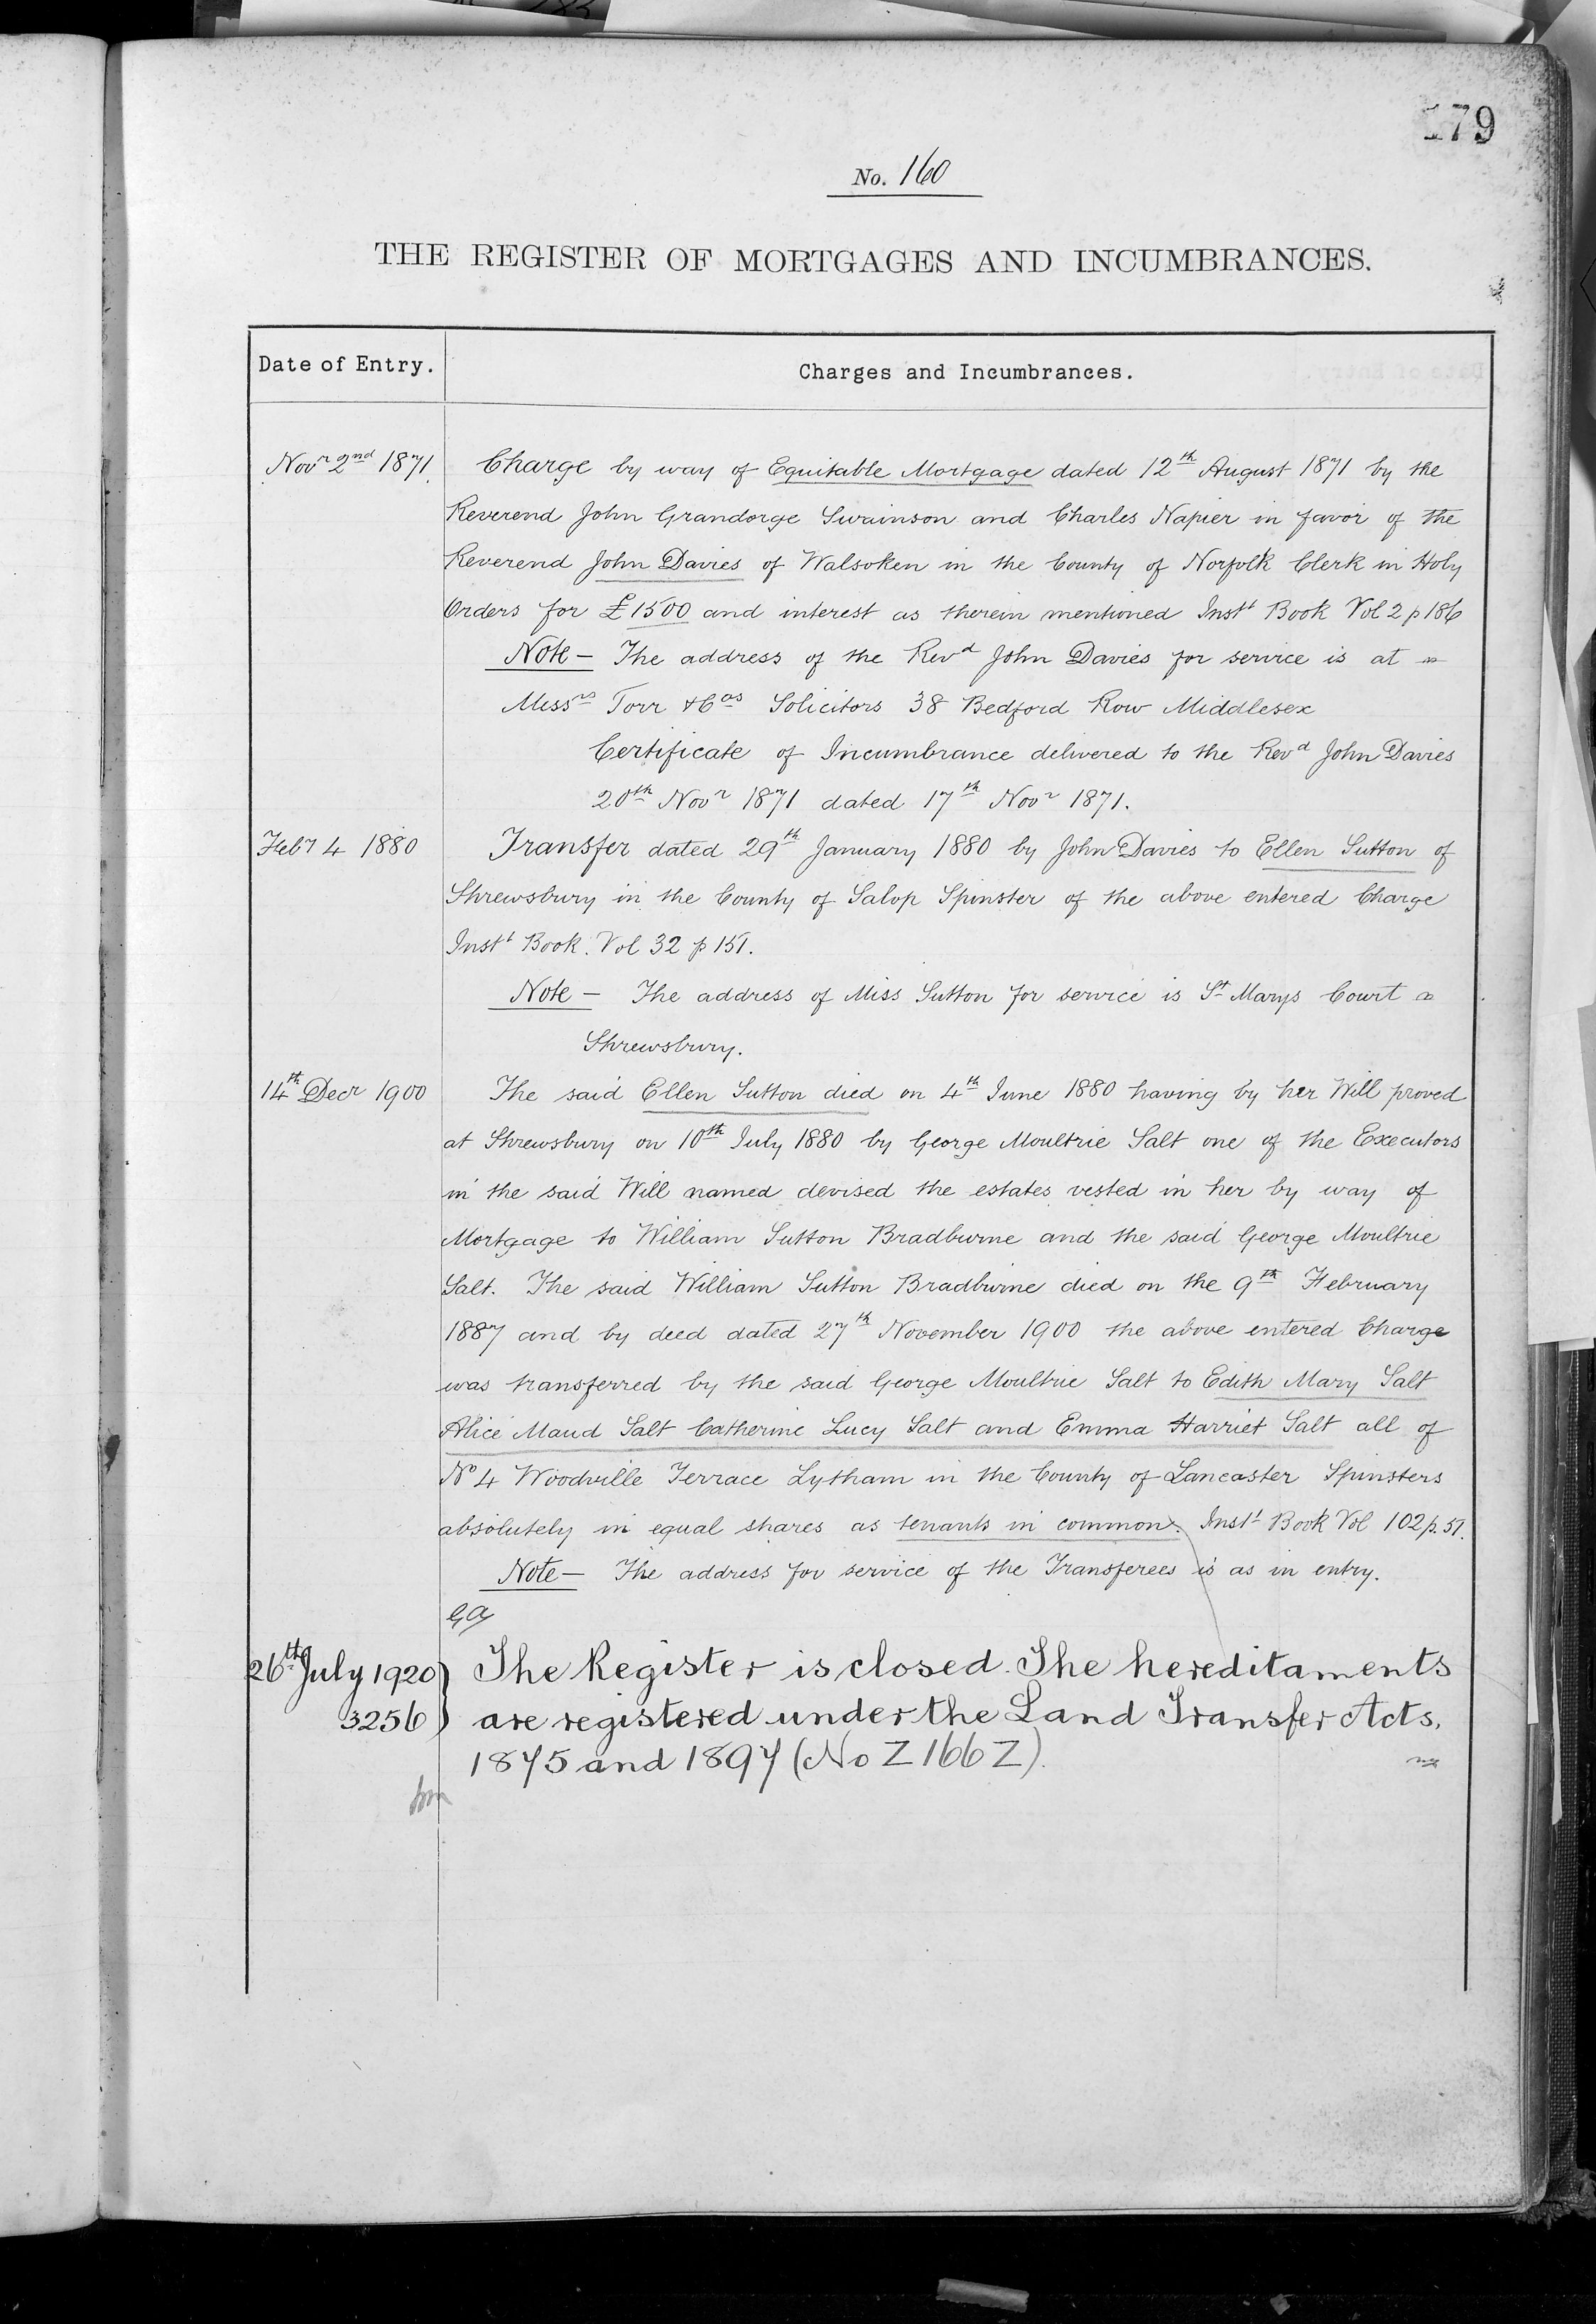 179
No. 160
THE REGISTER OF MORTGAGES AND INCUMBRANCES.
Date of Entry.
Charges and Incumbrances.
Novr 2nd 1871. Charge by way of Equitable Mortgage dated 12th August 1871 by the
Reverend John Grandorge Swainson and Charles Napier in favor of the
Reverend John Davies of Walsoken in the County of Norfolk Clerk in Holy
Orders for £1500 and interest as therein mentioned Instt Book Vol 2 p 186
Note — The address of the Revd John Davies for service is at
Messrs Torr & Cos Solicitors 38 Bedford Row Middlesex
Certificate of Incumbrance delivered to the Revd John Davies
20th Novr 1871 dated 17th Novr 1871.
Feby 4 1880 Transfer dated 29th January 1880 by John Davies to Ellen Sutton of
Shrewsbury in the County of Salop Spinster of the above entered Charge
Instt Book. Vol 32 p 151.
Note — The address of Miss Sutton for service is St Marys Court
Shrewsbury.
14th Decr 1900 The said Ellen Sutton died on 4th June 1880 having by her Will proved
at Shrewsbury on 10th July 1880 by George Moultrie Salt one of the Executors
in the said Will named devised the estates vested in her by way of
Mortgage to William Sutton Bradburne and the said George Moultrie
Salt. The said William Sutton Bradburne died on the 9th February
1887 and by deed dated 27th November 1900 the above entered Charge
was transferred by the said George Moultrie Salt to Edith Mary Salt
Alice Maud Salt Catherine Lucy Salt and Emma Harriet Salt all of
No 4 Woodville Terrace Lytham in the County of Lancaster Spinsters
absolutely in equal shares as tenants in common. Instt Book Vol 102 p. 51.
Note — The address for service of the Transferees is as in entry.
26th July 1920) The Register is closed. The hereditaments
3256) are registered under the Land Transfer Acts,
1875 and 1897 (No Z 166 Z).